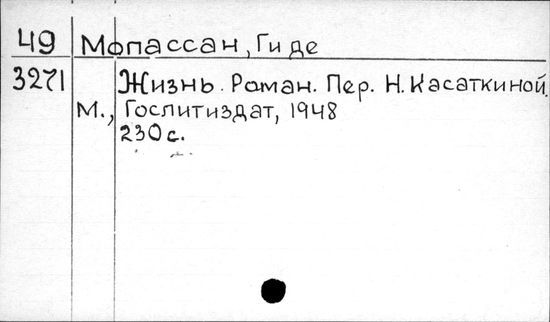 49 Мопассан, Ги де
3271 Жизнь. Роман. Пер. Н. Касаткиной.
М., Гослитиздат, 1948
230 с.